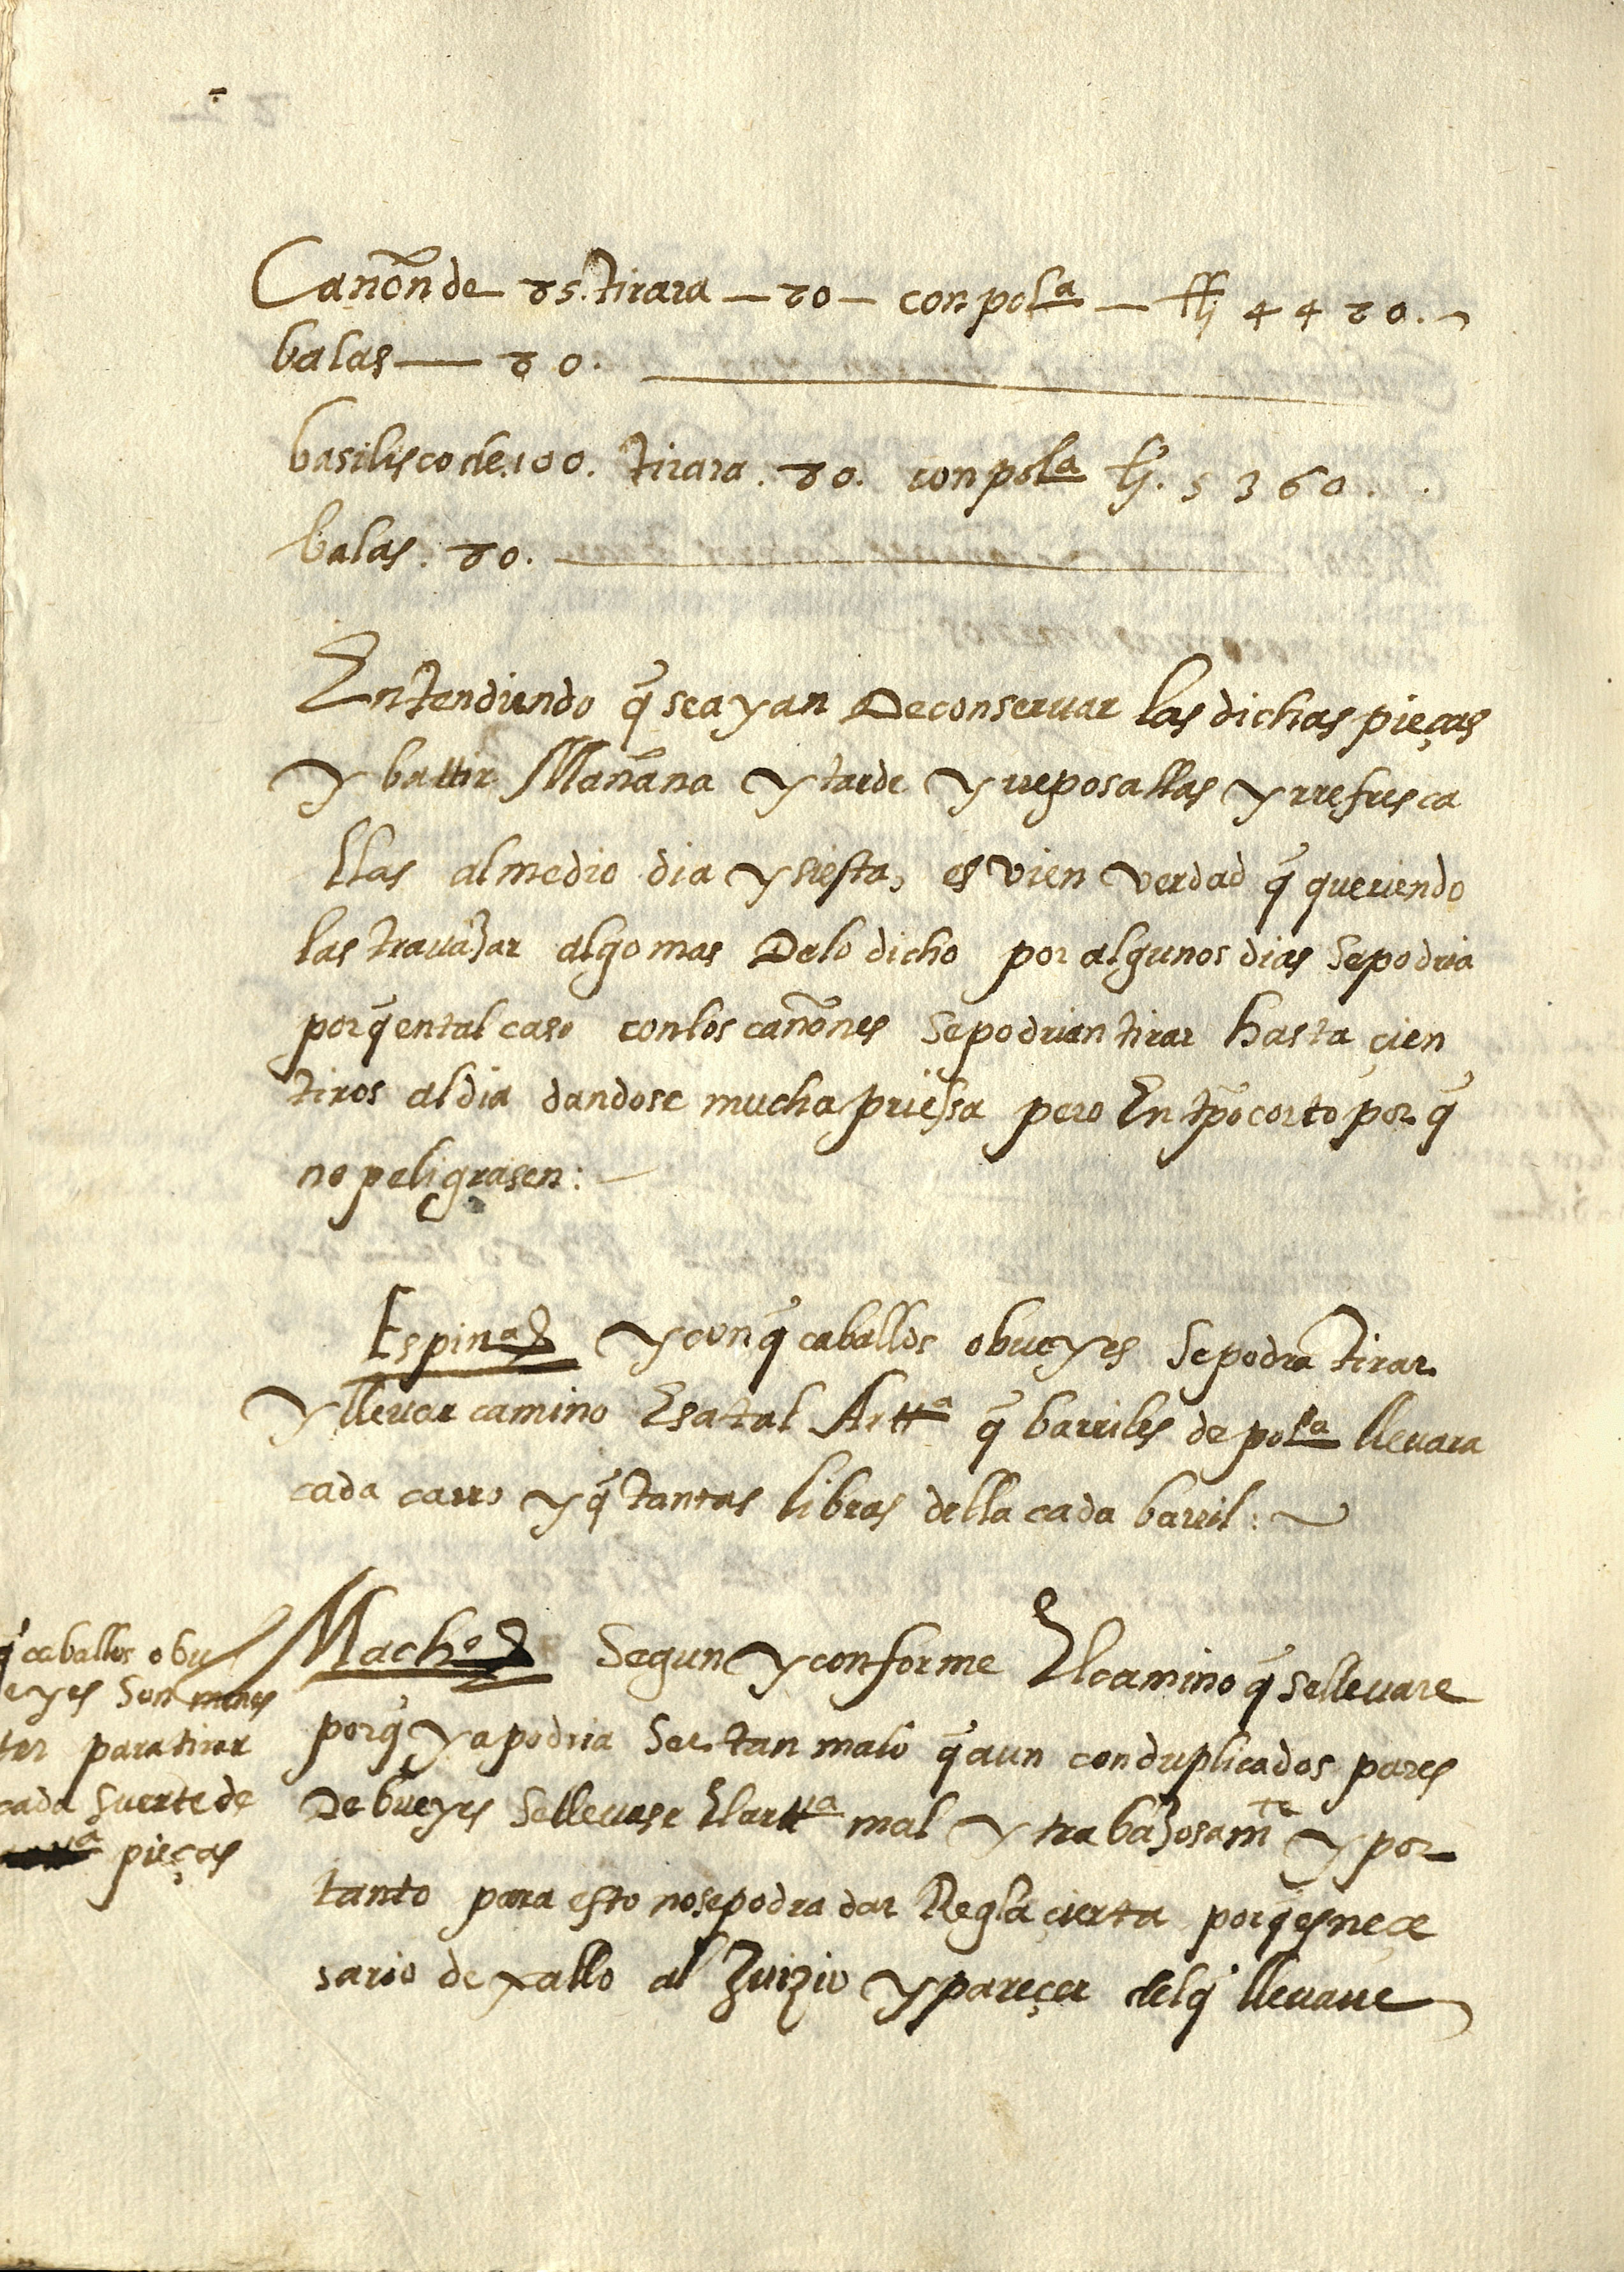 Cañon de 85. tirara — 80 — con polª — lb 4420.
balas — 80.
basilisco de 100. tirara . 80. con polª lb. 5360.
balas . 80.
Entendiendo q̃ se ayan De conseruar las dichas pieças
y battir Mañana y tarde y rreposallas y rrefresca
llas al medio dia y siesta, es vien verdad q̃ queriendo
las trauajar algo mas Delo dicho por algunos dias se podria
porq̃ en tal caso con los cañones se podrian tirar hasta çien
tiros al dia dandose mucha priessa pero En tp̃o corto por q̃
no peligrasen:
Espinᵃ y con q̃ caballos o bueyes se podra tirar
y lleuar camino Esa tal Arttª q̃ barriles de polª lleuara
cada carro y q̃ tantas libras della cada barril:
q̃ caballos o bu
eyes son menes
ter para tirar
cada suerte de
pieças
Machº Segun y conforme El camino q̃ se lleuare
porq̃ ya podria ser tan malo q̃ aun con duplicados pares
De bueyes se lleuase El arttª mal y trabajosamᵗᵉ y por
tanto para esto no se podra dar Regla çierta porq̃ es neçe
sario dexallo al Juizio y pareçer del q̃ lleuare